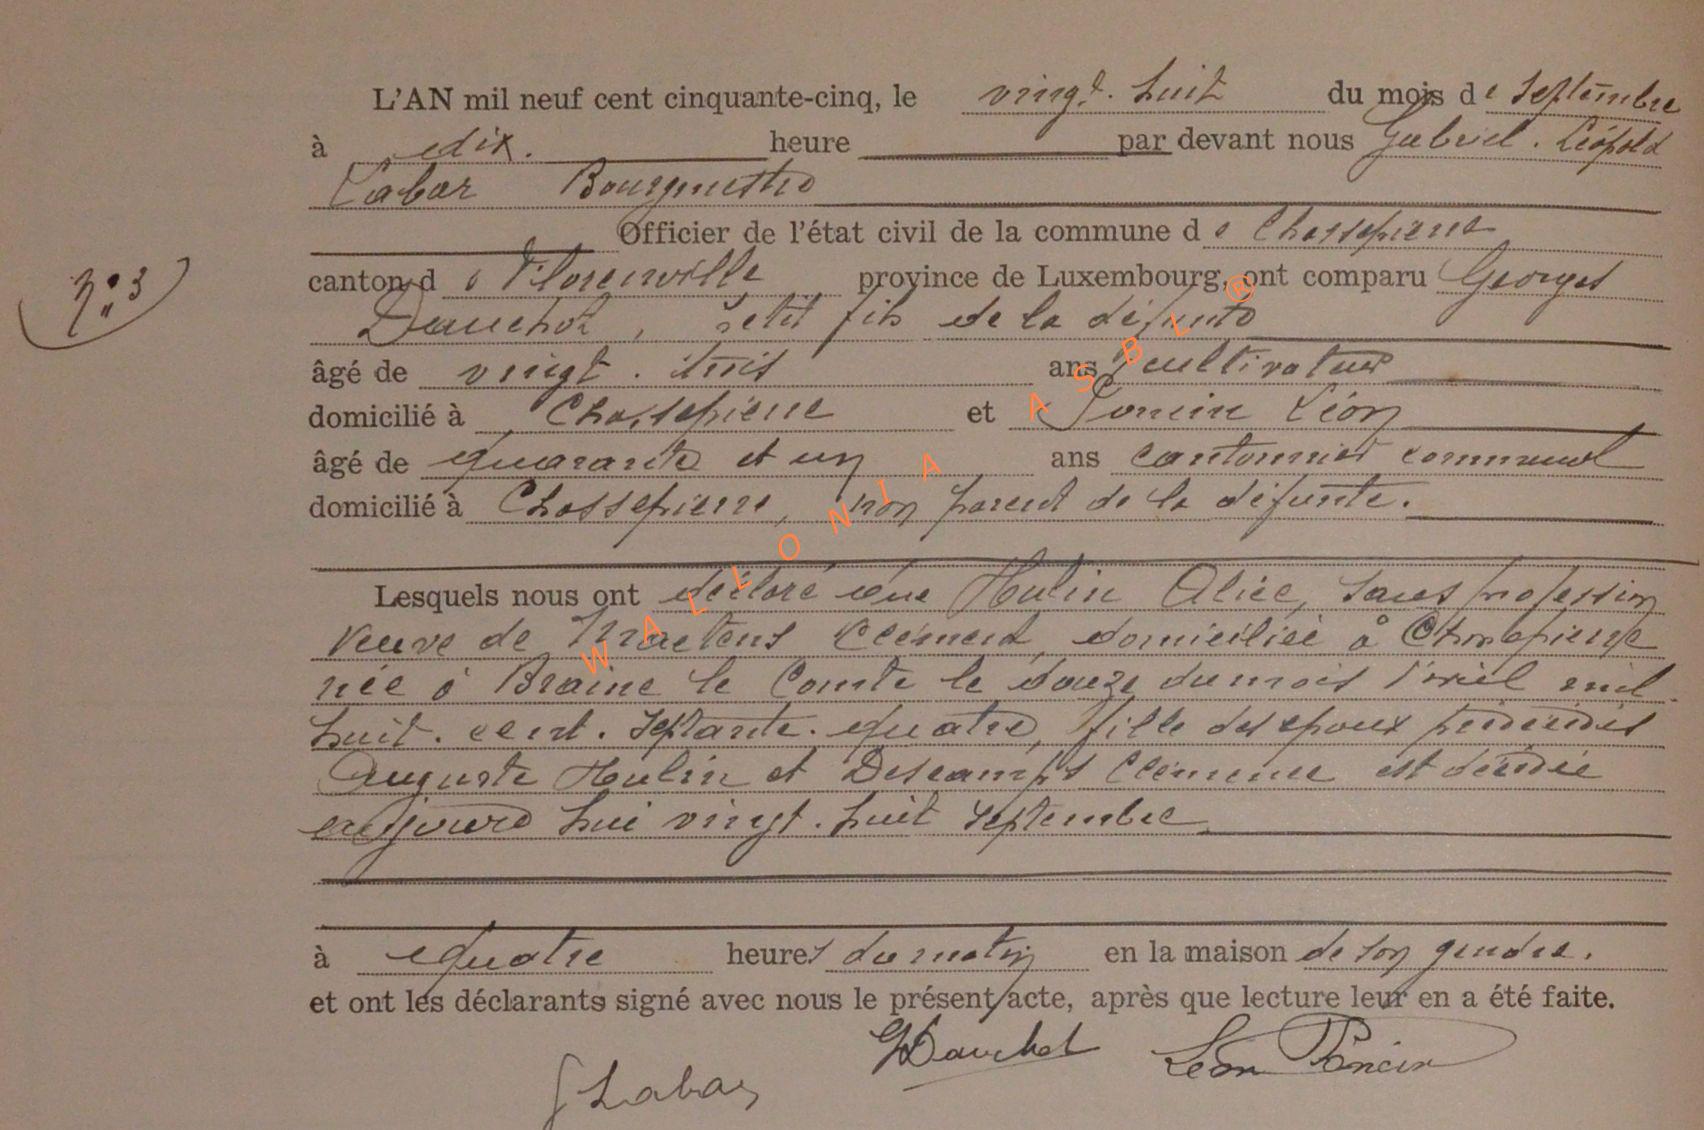 L'AN mil neuf cent cinquante-cinq, le vingt-huit du mois de septembre
à dix. heure par devant nous Gabriel. Léopold
Labar Bourgmestre
Officier de l'état civil de la commune de Chassepierre
N° 3
canton de Florenville province de Luxembourg, ont comparu Georges
Dauchot, petit fils de la défunte
âgé de vingt. trois ans cultivateur
domicilié à Chassepierre et Poncin Léon
âgé de quarante et un ans cantonnier communal
domicilié à Chassepierre, non parent de la défunte.
Lesquels nous ont déclaré que Hulin Alice, sans profession
veuve de Maetens Clément, domiciliée à Chassepierre
née à Braine le Comte le douze du mois d'avril mil
huit. cent. septante. quatre, fille des époux prédécédés
Auguste Hulin et Descamps Clémence est décédée
aujourd'hui vingt. huit septembre
à quatre heures du matin en la maison de son gendre.
et ont les déclarants signé avec nous le présent acte, après que lecture leur en a été faite.
G Dauchot Léon Poncin
G Labar
WALLONIA ASBL ®